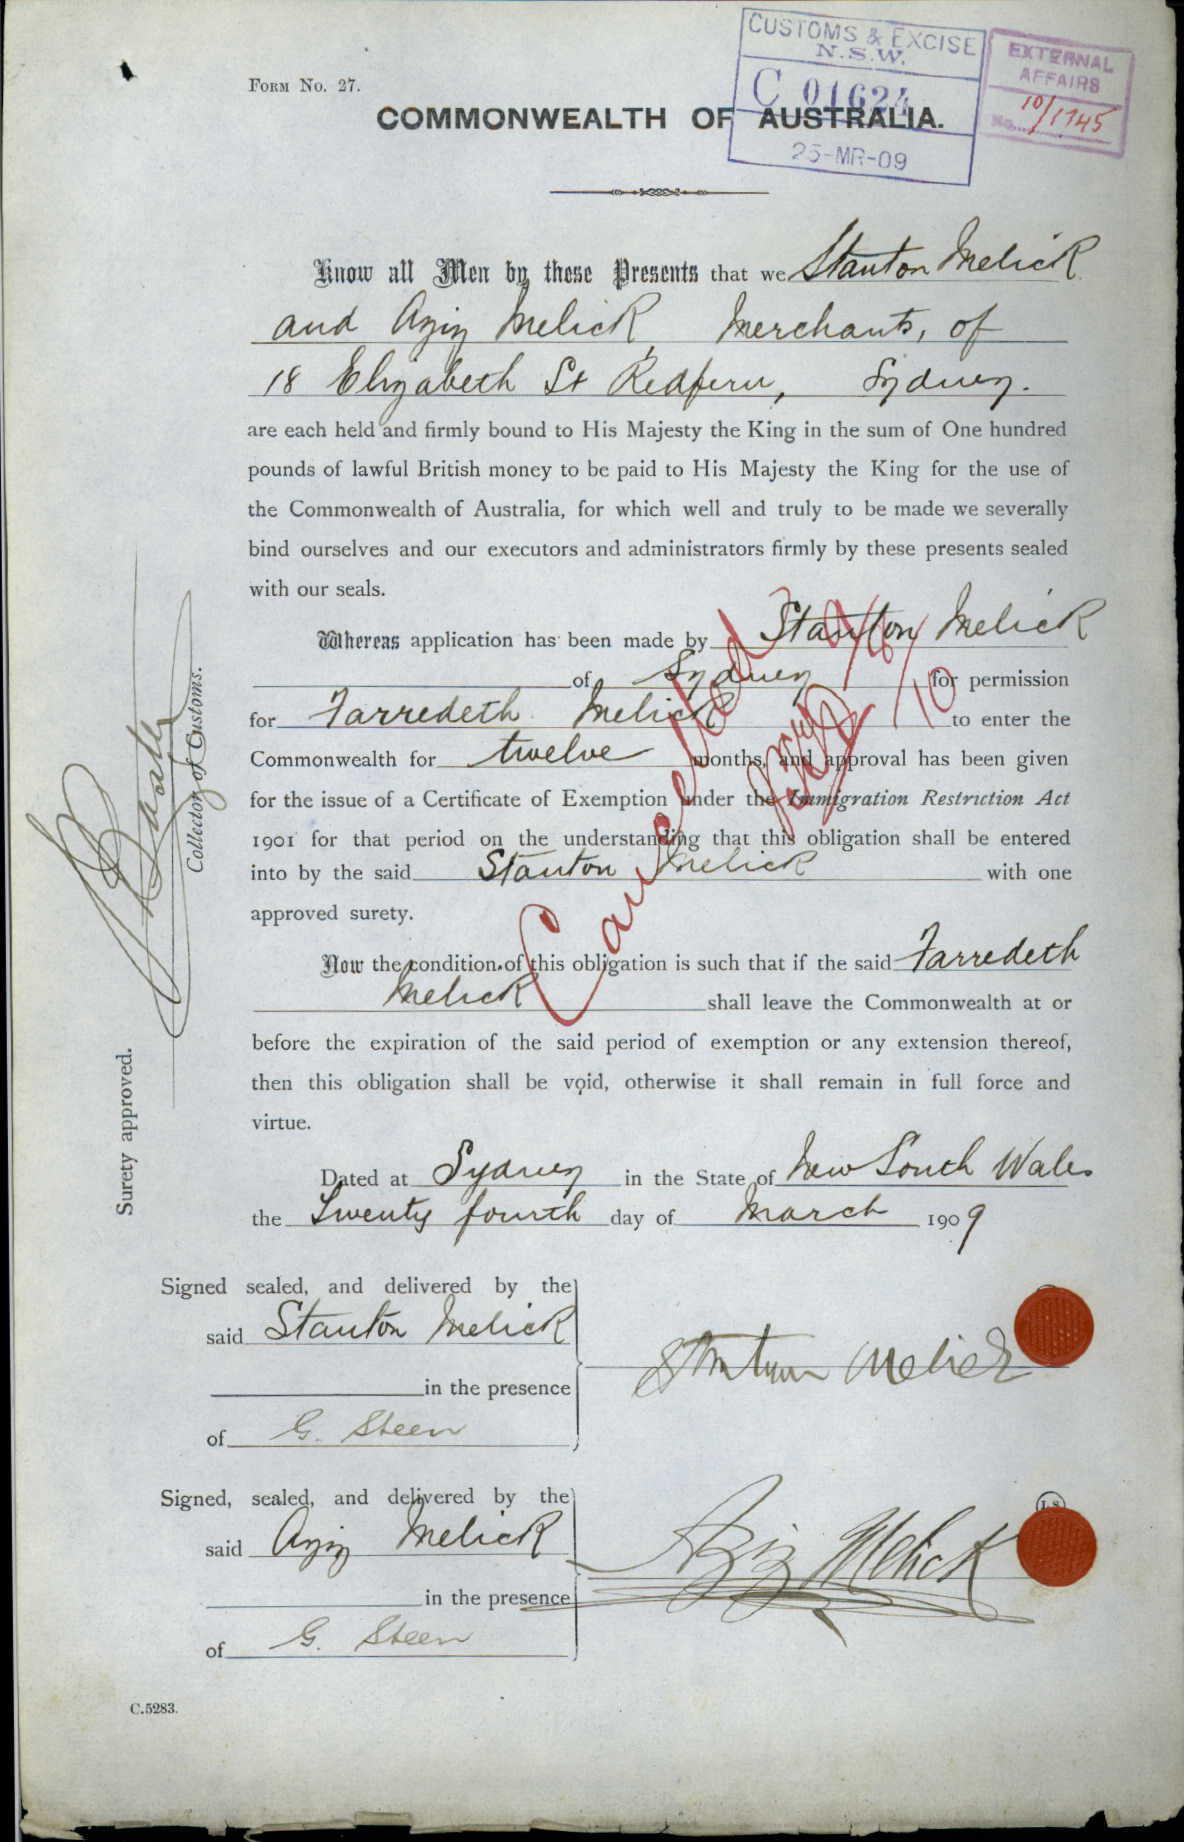 Form No. 27.
CUSTOMS & EXCISE
N.S.W.
C 01624
25-MR-09
EXTERNAL
AFFAIRS
No. 10/1745
COMMONWEALTH OF AUSTRALIA.
Know all Men by these Presents that we Stanton Melick
and Aziz Melick, Merchants, of
18 Elizabeth St Redfern, Sydney.
are each held and firmly bound to His Majesty the King in the sum of One hundred
pounds of lawful British money to be paid to His Majesty the King for the use of
the Commonwealth of Australia, for which well and truly to be made we severally
bind ourselves and our executors and administrators firmly by these presents sealed
with our seals.
Whereas application has been made by Stanton Melick
of Sydney for permission
for Farredeth Melick to enter the
Commonwealth for twelve months, and approval has been given
for the issue of a Certificate of Exemption under the Immigration Restriction Act
1901 for that period on the understanding that this obligation shall be entered
into by the said Stanton Melick with one
approved surety.
Now the condition of this obligation is such that if the said Farredeth
Melick shall leave the Commonwealth at or
before the expiration of the said period of exemption or any extension thereof,
then this obligation shall be void, otherwise it shall remain in full force and
virtue.
Cancelled
Dated at Sydney in the State of New South Wales
the Twenty fourth day of March 1909
Surety approved.
Collector of Customs.
Signed sealed, and delivered by the
said Stanton Melick
in the presence
of G. Steen
Stantun Melick
Signed, sealed, and delivered by the
said Aziz Melick
in the presence
of G. Steen
Aziz Melick
L.S.
C.5283.